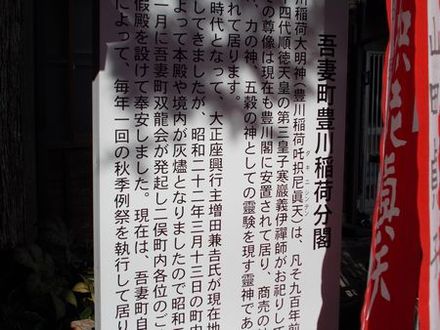 吾妻町豊川稲荷分閣
川稲荷大明神(豊川稲荷吒枳尼眞天)は、凡そ九百年前
十四代順徳天皇の第三皇子寒巖義伊禪師がお祀りし
の尊像は現在も豊川閣に安置されて居り、商売の
、力の神、五穀の神としての靈験を現す靈神であ
れて居ります。
時代となって、大正座興行主増田兼吉氏が現在地
してきましたが、昭和二十二年三月十三日の町内
よって本殿や境内が灰燼となりましたので昭和
一月に吾妻町双龍会が発起し二俣町内各位のご
仮殿を設けて奉安しました。現在は、吾妻町自
によって、毎年一回の秋季例祭を執行して居り
枳尼眞天